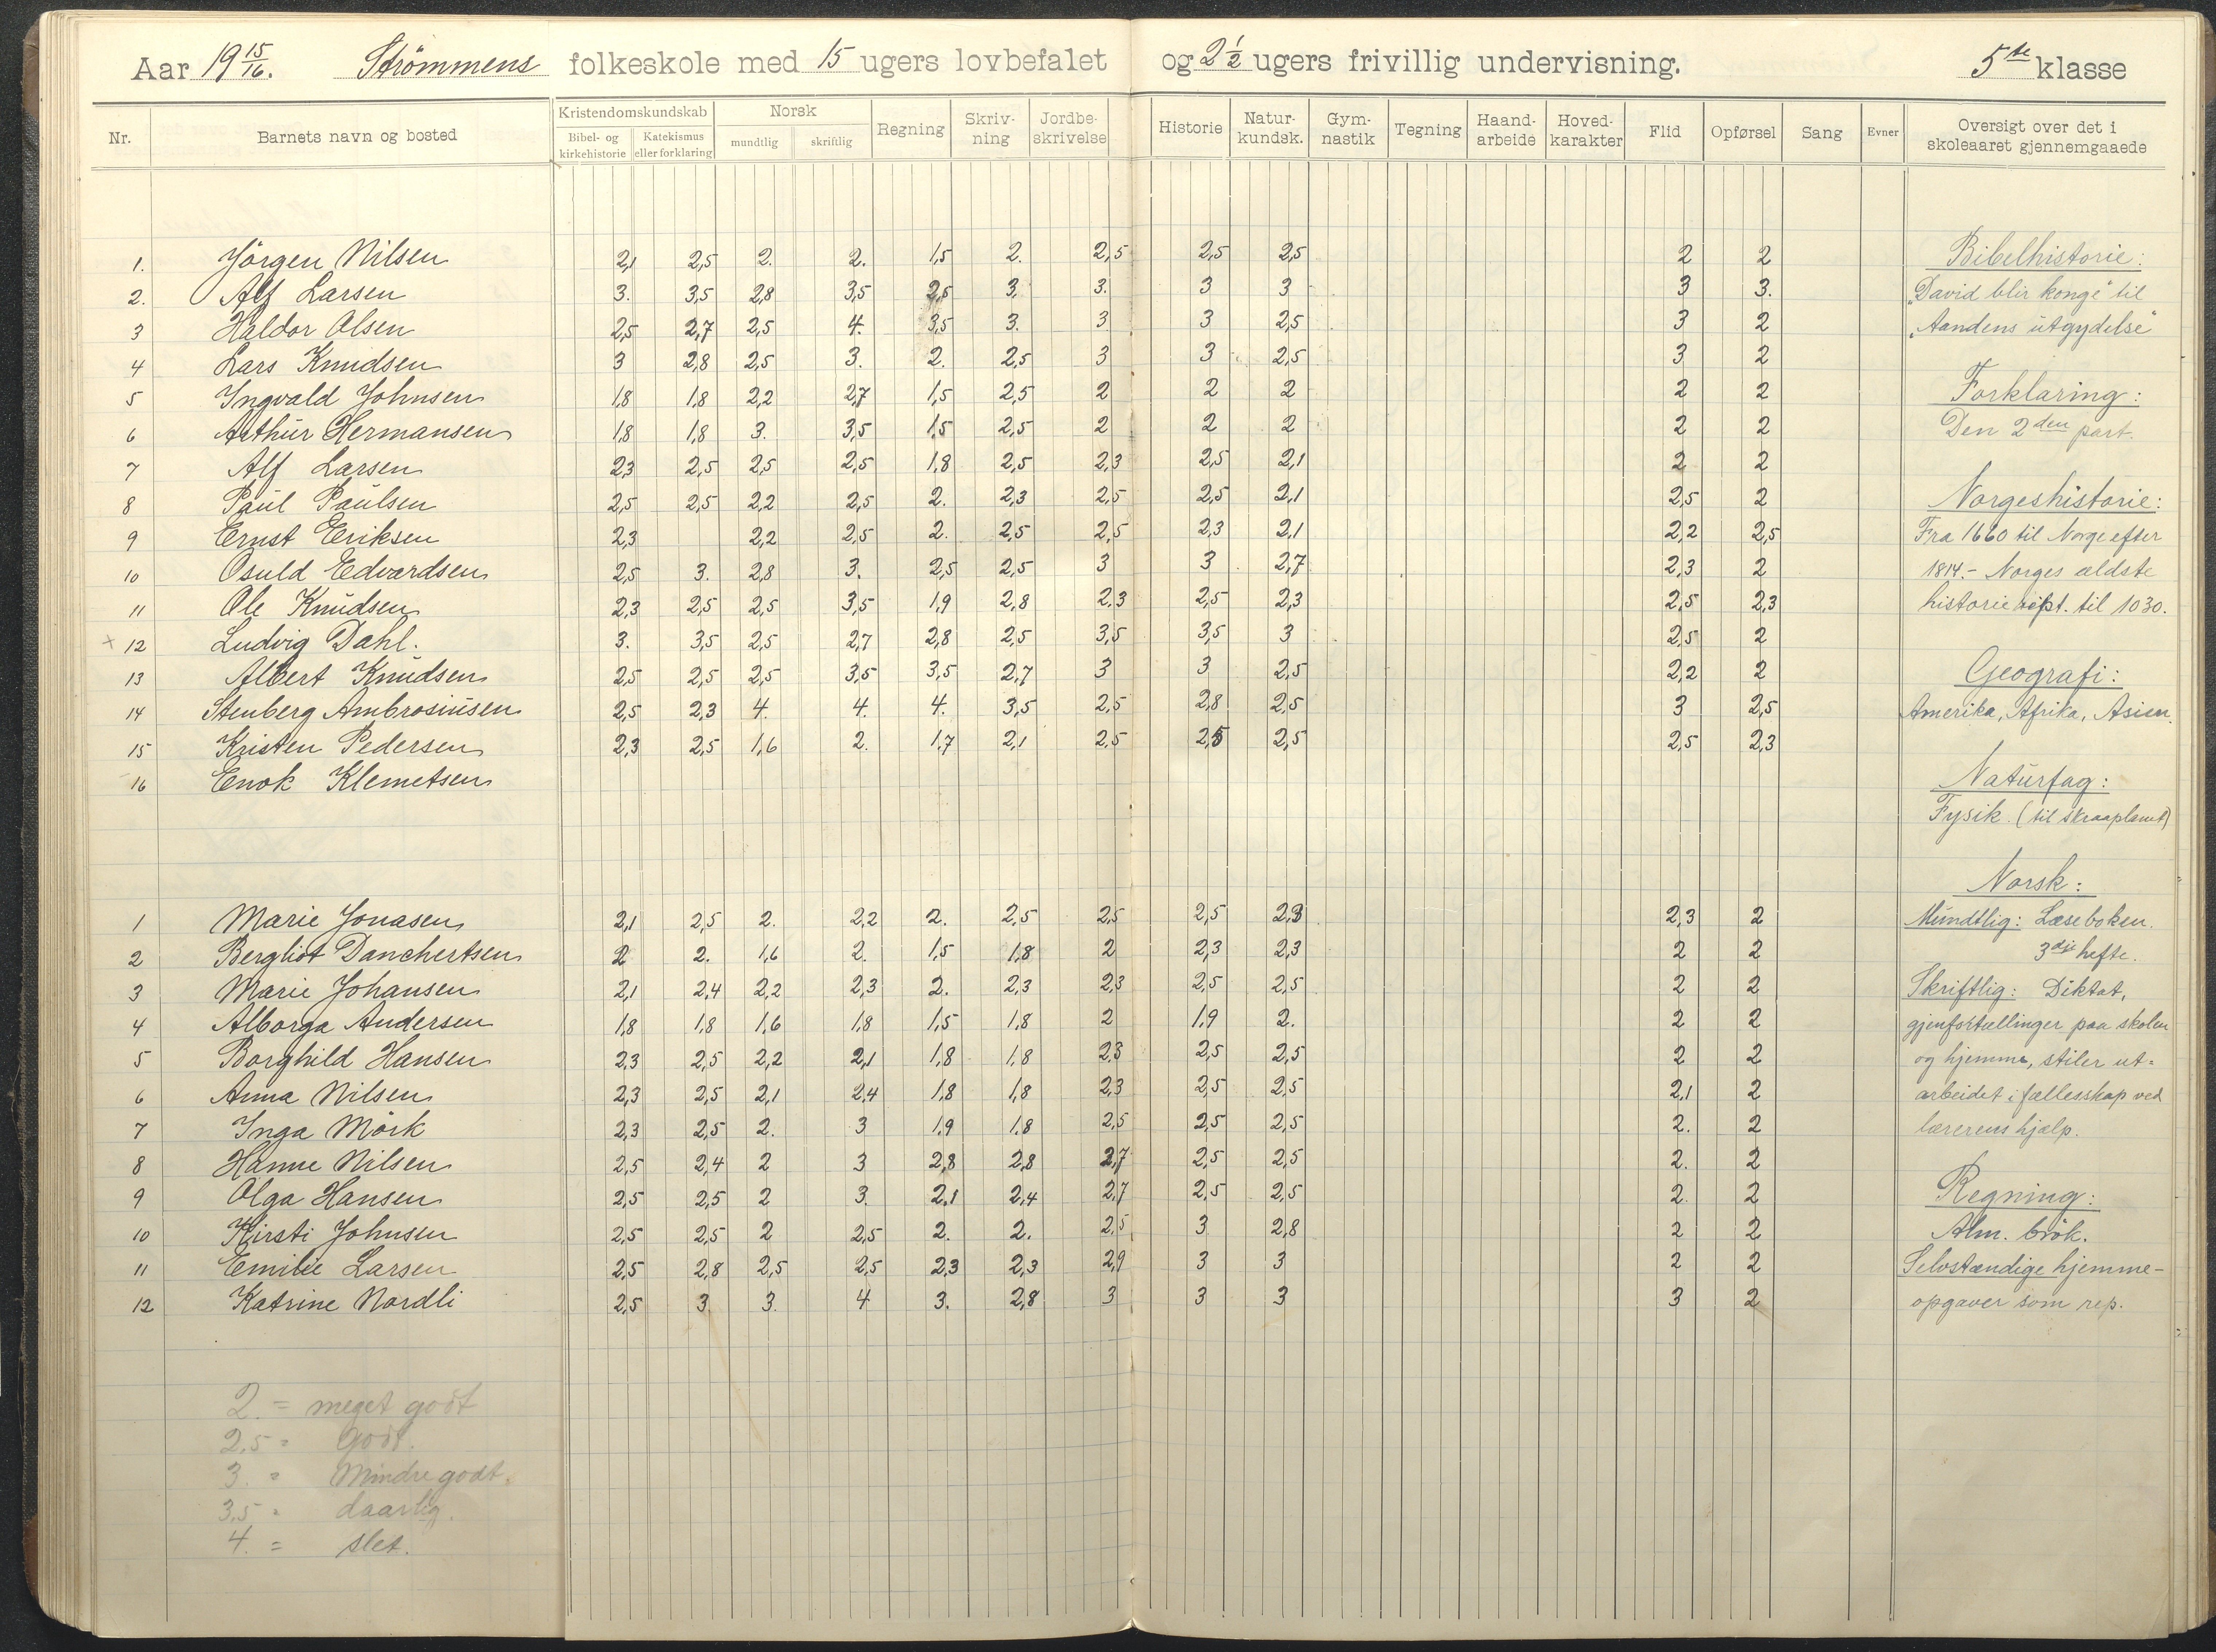 Aar 19 15/16. Strömmens folkeskole med 15 ugers lovbefalet og 2 1/2 ugers frivillig undervisning. 5te klasse
Nr. Barnets navn og bosted Kristendomskundskab Bibel- og kirkehistorie Katekismus eller forklaring Norsk mundtlig skriftlig Regning Skriv-ning Jordbe-skrivelse Historie Natur-kundsk. Gym-nastik Tegning Haand-arbeide Hoved-karakter Flid Opførsel Sang Evner Oversigt over det i skoleaaret gjennemgaaede
1. Jörgen Nilsen 2,1 2,5 2. 2. 1,5 2. 2,5 2,5 2,5 2 2 Bibelhistorie:
2. Alf Larsen 3. 3,5 2,8 3,5 2,5 3. 3. 3 3 3 3. "David blir konge" til
3 Haldor Olsen 2,5 2,7 2,5 4. 3,5 3. 3 3 2,5 3 2 "Aandens utgydelse"
4 Lars Knudsen 3 2,8 2,5 3. 2. 2,5 3 3 2,5 3 2
5 Ingvald Johnsen 1,8 1,8 2,2 2,7 1,5 2,5 2 2 2 2 2 Forklaring:
6 Arthur Hermansen 1,8 1,8 3. 3,5 1,5 2,5 2 2 2 2 2 Den 2den part.
7 Alf Larsen 2,3 2,5 2,5 2,5 1,8 2,5 2,3 2,5 2,1 2 2
8 Paul Paulsen 2,5 2,5 2,2 2,5 2. 2,3 2,5 2,5 2,1 2,5 2 Norgeshistorie:
9 Ernst Eriksen 2,3 2,2 2,5 2. 2,5 2,5 2,3 2,1 2,2 2,5 Fra 1660 til Norge efter
10 Osuld Edvardsen 2,5 3. 2,8 3. 2,5 2,5 3 3 2,7 2,3 2 1814.- Norges ældste
11 Ole Knudsen 2,3 2,5 2,5 3,5 1,9 2,8 2,3 2,5 2,3 2,5 2,3 historie til 1030.
+ 12 Ludvig Dahl. 3. 3,5 2,5 2,7 2,8 2,5 3,5 3,5 3 2,5 2
13 Albert Knudsen 2,5 2,5 2,5 3,5 3,5 2,7 3 3 2,5 2,2 2 Geografi:
14 Stenberg Ambrosiusen 2,5 2,3 4. 4. 4. 3,5 2,5 2,8 2,5 3 2,5 Amerika, Afrika, Asien.
15 Kristen Pedersen 2,3 2,5 1,6 2. 1,7 2,1 2,5 2,5 2,5 2,5 2,3
16 Enok Klemetsen Naturfag:
Fysik. (til skraaplanet)
Norsk:
1 Marie Jonasen 2,1 2,5 2. 2,2 2. 2,5 2,5 2,5 2,3 2,3 2 Mundtlig: Læseboken.
2 Bergliot Danchertsen 2 2. 1,6 2. 1,5 1,8 2 2,3 2,3 2 2 3dje hefte.
3 Marie Johansen 2,1 2,4 2,2 2,3 2. 2,3 2,3 2,5 2,5 2 2 Skriftlig: Diktat,
4 Alborga Andersen 1,8 1,8 1,6 1,8 1,5 1,8 2 1,9 2. 2 2 gjenfortællinger paa skolen
5 Borghild Hansen 2,3 2,5 2,2 2,1 1,8 1,8 2,3 2,5 2,5 2 2 og hjemme, stiler ut=
6 Anna Nilsen 2,3 2,5 2,1 2,4 1,8 1,8 2,3 2,5 2,5 2,1 2 arbeidet i fællesskap ved
7 Inga Mörk 2,3 2,5 2. 3 1,9 1,8 2,5 2,5 2,5 2. 2 lærerens hjælp.
8 Hanne Nilsen 2,5 2,4 2 3 2,8 2,8 2,7 2,5 2,5 2. 2
9 Olga Hansen 2,5 2,5 2 3. 2,1 2,4 2,7 2,5 2,5 2. 2 Regning:
10 Kirsti Johnsen 2,5 2,5 2 2,5 2. 2. 2,5 3 2,8 2 2 Alm. brök.
11 Emilie Larsen 2,5 2,8 2,5 2,5 2,3 2,3 2,9 3 3 2 2 Selvstændige hjemme-
12 Katrine Nordli 2,5 3 3. 4 3. 2,8 3 3 3 3 2 opgaver som rep.
2. = meget godt
2,5 = Godt.
3. = Mindre godt.
3,5 = daarlig.
4. = slet.